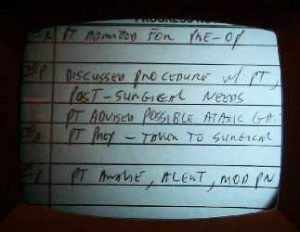 PROGRESS
PT ADMITTED FOR PRE-OP
DISCUSSED PROCEDURE W/ PT,
POST-SURGICAL NEEDS
PT ADVISED POSSIBLE ATAXIC GA
PT PREP - TAKEN TO SURGICAL
PT AWAKE, ALERT, MOD PN